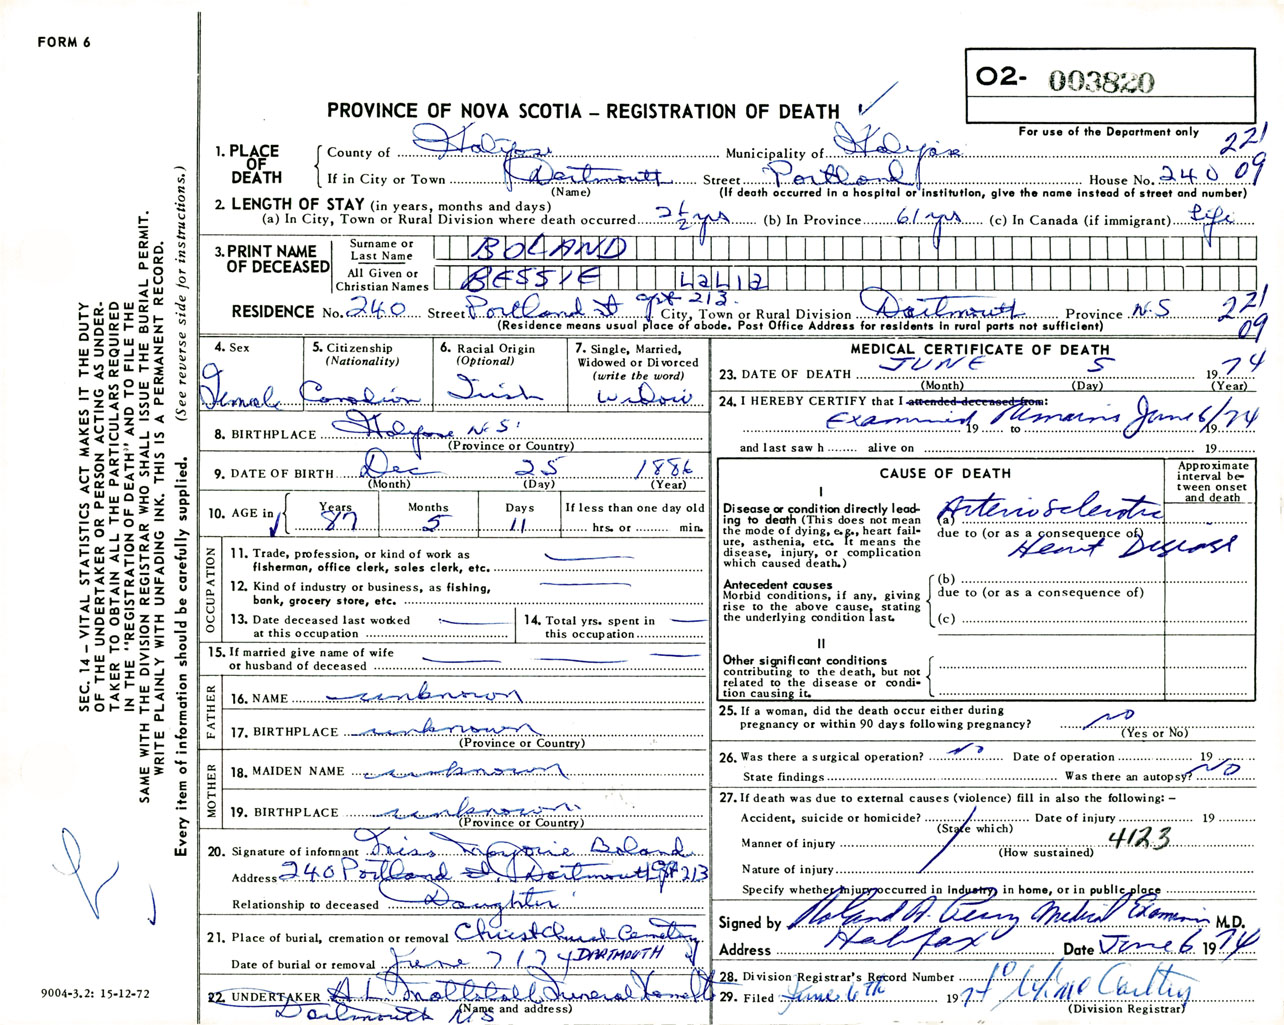 FORM 6
O2- 003820
For use of the Department only
PROVINCE OF NOVA SCOTIA – REGISTRATION OF DEATH
221
09
1. PLACE OF DEATH
County of Halifax Municipality of Halifax
If in City or Town Dartmouth Street Portland House No. 240
(Name) (If death occurred in a hospital or institution, give the name instead of street and number)
2. LENGTH OF STAY (in years, months and days)
(a) In City, Town or Rural Division where death occurred 2½ yrs (b) In Province 61 yrs (c) In Canada (if immigrant) Life
3. PRINT NAME OF DECEASED
Surname or Last Name BOLAND
All Given or Christian Names BESSIE LaLia
RESIDENCE No. 240 Street Portland St apt 213. City, Town or Rural Division Dartmouth Province N.S
(Residence means usual place of abode. Post Office Address for residents in rural parts not sufficient)
221
09
4. Sex
Female
5. Citizenship
(Nationality)
Canadian
6. Racial Origin
(Optional)
Irish
7. Single, Married, Widowed or Divorced
(write the word)
Widow
8. BIRTHPLACE Halifax N.S.
(Province or Country)
9. DATE OF BIRTH Dec 25 1886
(Month) (Day) (Year)
10. AGE in
Years Months Days If less than one day old
87 5 11 hrs. or min.
OCCUPATION
11. Trade, profession, or kind of work as fisherman, office clerk, sales clerk, etc.
12. Kind of industry or business, as fishing, bank, grocery store, etc.
13. Date deceased last worked at this occupation
14. Total yrs. spent in this occupation
15. If married give name of wife or husband of deceased
FATHER
16. NAME unknown
17. BIRTHPLACE unknown
(Province or Country)
MOTHER
18. MAIDEN NAME unknown
19. BIRTHPLACE unknown
(Province or Country)
20. Signature of informant Miss Marjorie Boland
Address 240 Portland St. Dartmouth apt 213
Relationship to deceased Daughter
21. Place of burial, cremation or removal Christ Church Cemetry
DARTMOUTH
Date of burial or removal June 7/74
22. UNDERTAKER A L Mattatall Funeral Home Ltd
(Name and address)
Dartmouth N.S
MEDICAL CERTIFICATE OF DEATH
23. DATE OF DEATH JUNE 5 1974
(Month) (Day) (Year)
24. I HEREBY CERTIFY that I attended deceased from:
Examined Remains June 6/74
19 to 19
and last saw h alive on 19
CAUSE OF DEATH
Approximate interval between onset and death
I
Disease or condition directly leading to death (This does not mean the mode of dying, e.g., heart failure, asthenia, etc. It means the disease, injury, or complication which caused death.)
(a) Arteriosclerotic
due to (or as a consequence of)
Heart Disease
Antecedent causes
Morbid conditions, if any, giving rise to the above cause, stating the underlying condition last.
(b)
due to (or as a consequence of)
(c)
II
Other significant conditions contributing to the death, but not related to the disease or condition causing it.
25. If a woman, did the death occur either during pregnancy or within 90 days following pregnancy? no
(Yes or No)
26. Was there a surgical operation? no Date of operation 19
State findings Was there an autopsy? NO
27. If death was due to external causes (violence) fill in also the following: –
Accident, suicide or homicide? Date of injury 19
(State which)
Manner of injury 4123
(How sustained)
Nature of injury
Specify whether injury occurred in Industry, in home, or in public place
Signed by Roland A. Perry Medical Examiner M.D.
Address Halifax Date June 6 1974
28. Division Registrar's Record Number
29. Filed June 6th 1974
(Division Registrar)
SEC. 14 – VITAL STATISTICS ACT MAKES IT THE DUTY
OF THE UNDERTAKER OR PERSON ACTING AS UNDER-
TAKER TO OBTAIN ALL THE PARTICULARS REQUIRED
IN THE "REGISTRATION OF DEATH" AND TO FILE THE
SAME WITH THE DIVISION REGISTRAR WHO SHALL ISSUE THE BURIAL PERMIT.
WRITE PLAINLY WITH UNFADING INK. THIS IS A PERMANENT RECORD.
Every item of information should be carefully supplied. (See reverse side for instructions.)
9004-3.2: 15-12-72